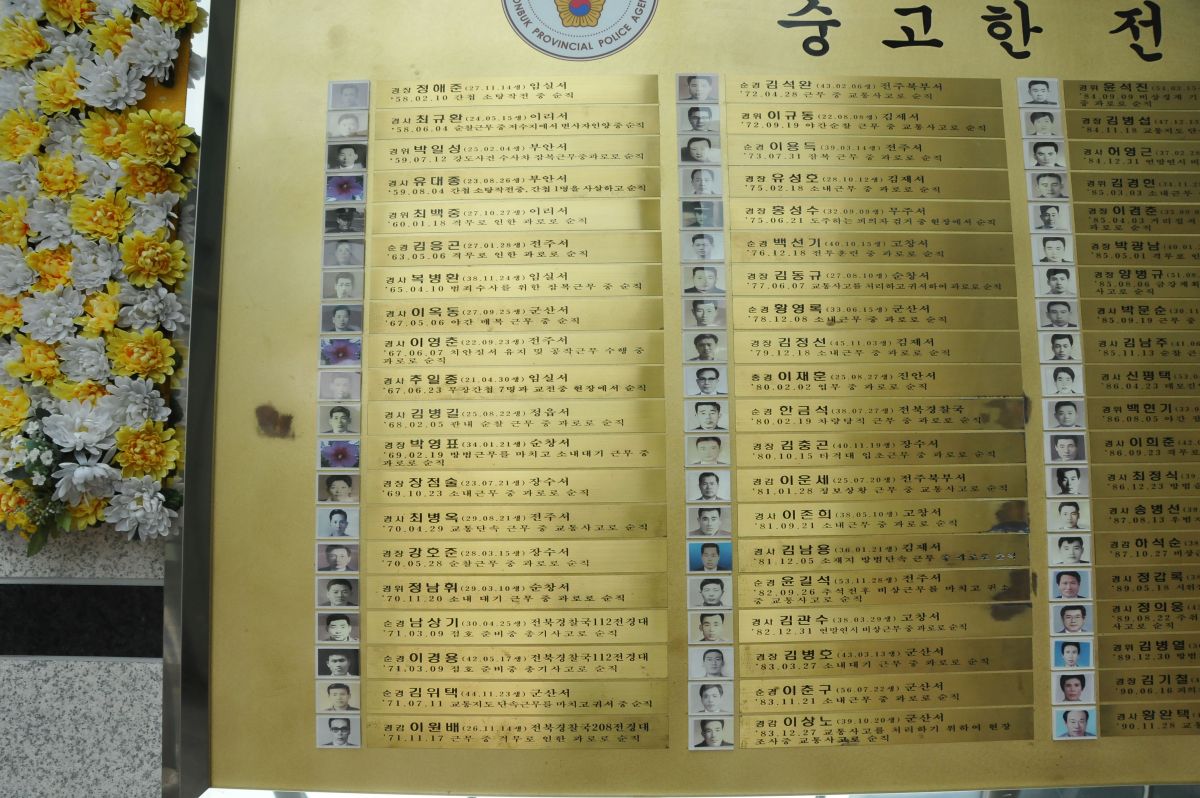 ONBUK PROVINCIAL POLICE AGEN
숭고한 전
경장 정해준(27.11.14생) 임실서
'58.02.10 간첩 소탕작전 중 순직
경사 최규환(24.05.15생) 이리서
'58.06.04 순찰근무중 저수지에서 변사자인양 중 순직
경위 박일성(25.02.04생) 부안서
'59.07.12 강도사건 수사차 잠복근무중과로로 순직
경사 유대중(23.08.26생) 부안서
'59.08.04 간첩 소탕작전중, 간첩 1명을 사살하고 순직
경위 최백중(27.10.27생) 이리서
'60.01.18 격무로 인한 과로로 순직
순경 김응곤(27.01.28생) 전주서
'63.05.06 격무로 인한 과로로 순직
경사 복병환(38.11.24생) 임실서
'65.04.10 범죄수사를 위한 잠복근무 중 순직
경사 이옥동(27.09.25생) 군산서
'67.05.06 야간 매복 근무 중 순직
경사 이영춘(22.09.23생) 전주서
'67.06.07 치안질서 유지 및 공작근무 수행 중
과로로 순직
경사 추일종(21.04.30생) 임실서
'67.06.23 무장간첩 7명과 교전중 현장에서 순직
경사 김병길(25.08.22생) 정읍서
'68.02.05 관내 순찰 근무 중 과로로 순직
경장 박영표(34.01.21생) 순창서
'69.02.19 방범근무를 마치고 소내대기 근무 중
과로로 순직
경장 장점술(23.07.21생) 장수서
'69.10.23 소내근무 중 과로로 순직
경사 최병옥(29.08.21생) 전주서
'70.04.29 교통단속 근무 중 교통사고로 순직
경장 강호준(28.03.15생) 장수서
'70.05.28 순찰근무 중 과로로 순직
경위 정남휘(29.03.10생) 순창서
'70.11.20 소내 대기 근무 중 과로로 순직
순경 남상기(30.04.25생) 전북경찰국112전경대
'71.03.09 점호 준비중 총기사고로 순직
순경 이경용(42.05.17생) 전북경찰국112전경대
'71.03.09 점호 준비중 총기사고로 순직
순경 김위택(44.11.23생) 군산서
'71.07.11 교통지도단속근무를 마치고 귀서 중 순직
경감 이원배(26.11.14생) 전북경찰국208전경대
'71.11.17 근무 중 격무로 인한 과로로 순직
순경 김석완(43.02.06생) 전주북부서
'72.04.28 근무 중 교통사고로 순직
경위 이규동(22.08.08생) 김제서
'72.09.19 야간순찰 근무 중 교통사고로 순직
순경 이용득(39.03.14생) 전주서
'73.07.31 잠복 근무 중 과로로 순직
경장 유성호(28.10.12생) 김제서
'75.02.18 소내근무 중 과로로 순직
경장 홍성수(32.09.09생) 무주서
'75.06.21 도주하는 피의자 검거 중 현장에서 순직
순경 백선기(40.10.15생) 고창서
'76.12.18 전투훈련 중 과로로 순직
경장 김동규(27.08.10생) 순창서
'77.06.07 교통사고를 처리하고 귀서하여 과로로 순직
순경 황영록(33.06.15생) 군산서
'78.12.08 소내근무 중 과로로 순직
경장 김정신(45.11.03생) 김제서
'79.12.18 소내근무 중 과로로 순직
총경 이재훈(25.08.27생) 진안서
'80.02.02 업무 중 과로로 순직
순경 한금석(38.07.27생) 전북경찰국
'80.02.19 차량당직 근무 중 과로로 순직
경장 김종곤(40.11.19생) 장수서
'80.10.15 타격대 입초근무 중 과로로 순직
경감 이운세(25.07.20생) 전주북부서
'81.01.28 정보상황 근무 중 교통사고로 순직
경사 이존희(38.05.10생) 고창서
'81.09.21 소내근무 중 과로로 순직
경사 김남용(36.01.21생) 김제서
'81.12.05 소재지 방범단속 근무 중
순경 윤길석(53.11.28생) 전주서
'82.09.26 추석전후 비상근무를 마치고 귀소
중 교통사고로 순직
경사 김관수(38.03.29생) 고창서
'82.12.31 연말연시 비상근무 중 과로로 순직
경장 김병호(43.03.13생) 군산서
'83.03.27 소내대기 근무 중 과로로 순직
순경 이춘구(56.07.22생) 군산서
'83.11.21 소내근무 중 과로로 순직
경감 이상노(39.10.20생) 군산서
'83.12.27 교통사고를 처리하기 위하여 현장
조사중 교통사고로 순직
경위 윤석진
'84.09.09 비상경계
중 과로로 순직
경장 김병섭
'84.11.18 교통지도 단
경사 허영근
'84.12.31 연말연시 비
경위 김경현
'85.03.03 소내근무
경장 이겸춘
'85.04.03
과로로 순직
경장 박광남
'85.05.01 격무로 인
경장 양병규
'85.08.06
사고로 순직
경사 박문순
'85.09.19 근무 중
경사 김남주
'85.11.13 순찰 근
경사 신평택
'86.04.23
경위 백현기
'86.08.05 야간
경사 이희준
'86.09.23 격무로
경사 최정식
'86.12.23 방범
경사 송병선
'87.08.13
경감 하석순
'87.10.27 비상
경사 정갑록
'89.05.18
경사 정의웅
'89.08.22
사고로 순직
경위 김병열
'89.12.30 방범
경장 김기철
'90.06.16
경사 황완택
'90.11.28 교통